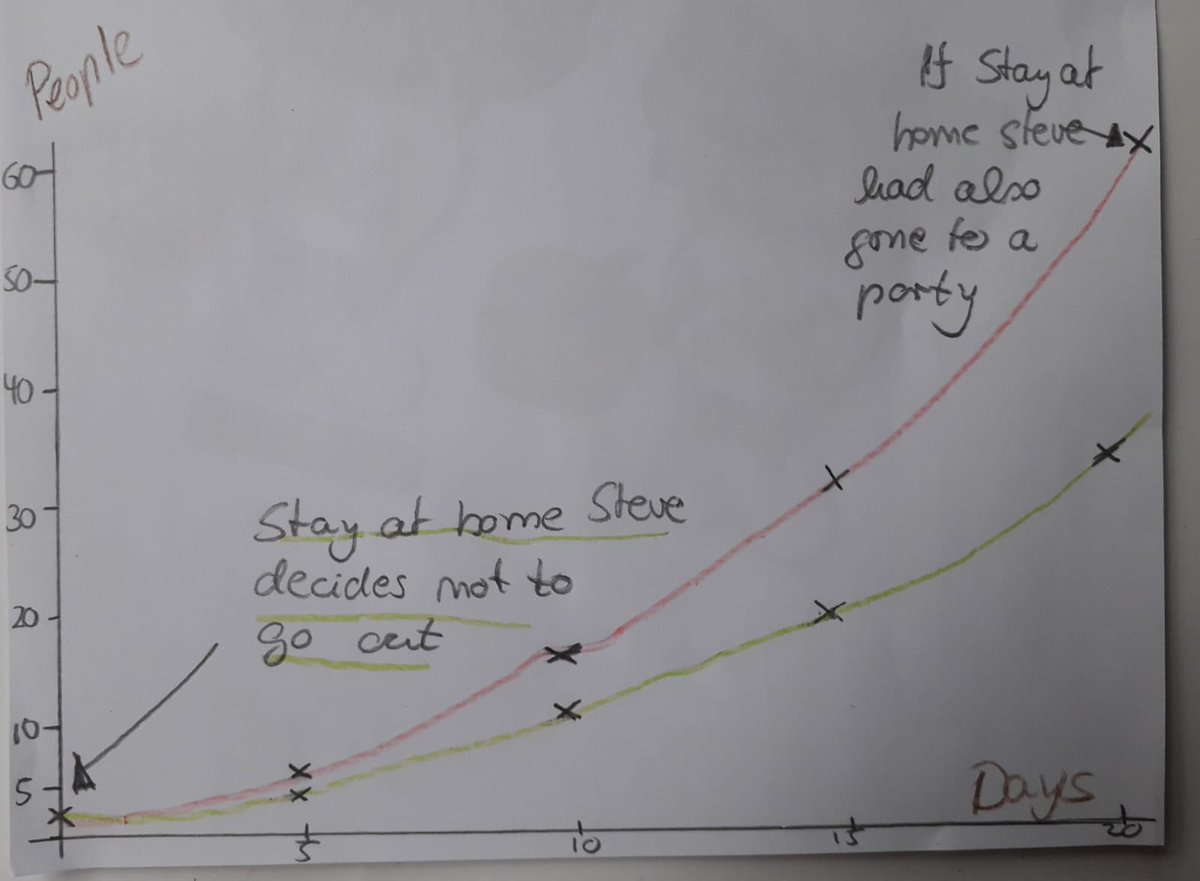 People
If Stay at
home steve
had also
gone to a
party
60
50
40
30
20
10
5
Stay at home Steve
decides not to
go out
Days
5
10
15
20